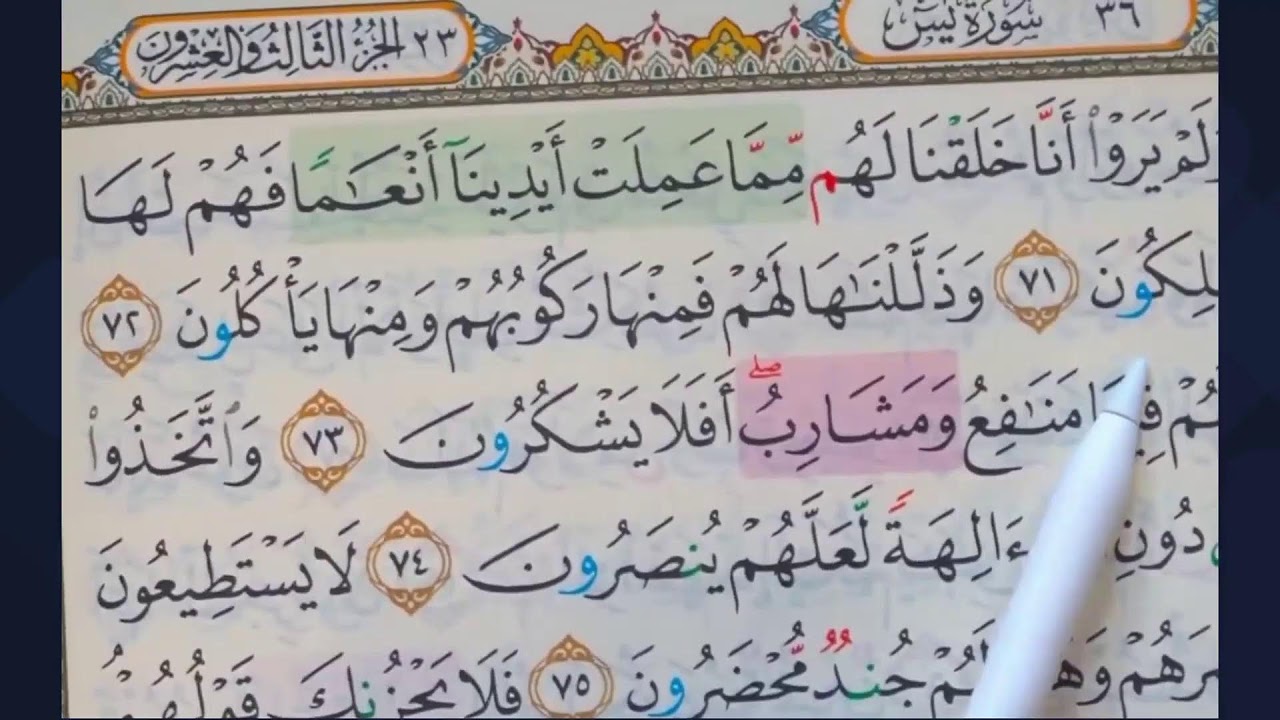 ٣٦ سُورَةُ يسٓ
الجُزْءُ الثَّالِثُ وَالعِشْرُونَ ٢٣
وَلَمْ يَرَوْا۟ أَنَّا خَلَقْنَا لَهُم مِّمَّا عَمِلَتْ أَيْدِينَآ أَنْعَـٰمًا فَهُمْ لَهَا
مَـٰلِكُونَ ٧١ وَذَلَّلْنَـٰهَا لَهُمْ فَمِنْهَا رَكُوبُهُمْ وَمِنْهَا يَأْكُلُونَ ٧٢
وَلَهُمْ فِيهَا مَنَـٰفِعُ وَمَشَارِبُ ۖ أَفَلَا يَشْكُرُونَ ٧٣ وَٱتَّخَذُوا۟
دُونِ ءَالِهَةً لَّعَلَّهُمْ يُنصَرُونَ ٧٤ لَا يَسْتَطِيعُونَ
نَصْرَهُمْ وَهُمْ لَهُمْ جُندٌ مُّحْضَرُونَ ٧٥ فَلَا يَحْزُنكَ قَوْلُهُمْ